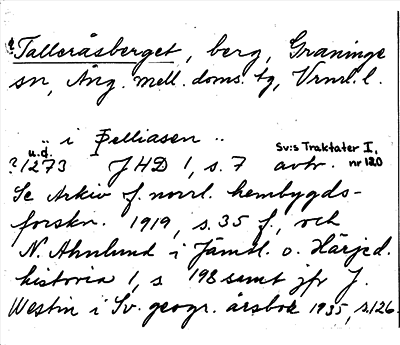 ? Talleråsberget, berg, Graninge
sn, Ång. mell. doms. tg, Vrnrl. l.
.. i þelliasen ..
u.d. Sv:s Traktater I,
?1273 JHD 1, s. 7 avtr. nr 120
Se Arkiv f. norrl. hembygds-
forskn. 1919, s. 35 f., och
N. Ahnlund i Jämtl. o. Härjed.
historia 1, s 198 samt jfr J.
Westin i Sv. geogr. årsbok 1935, s. 126.